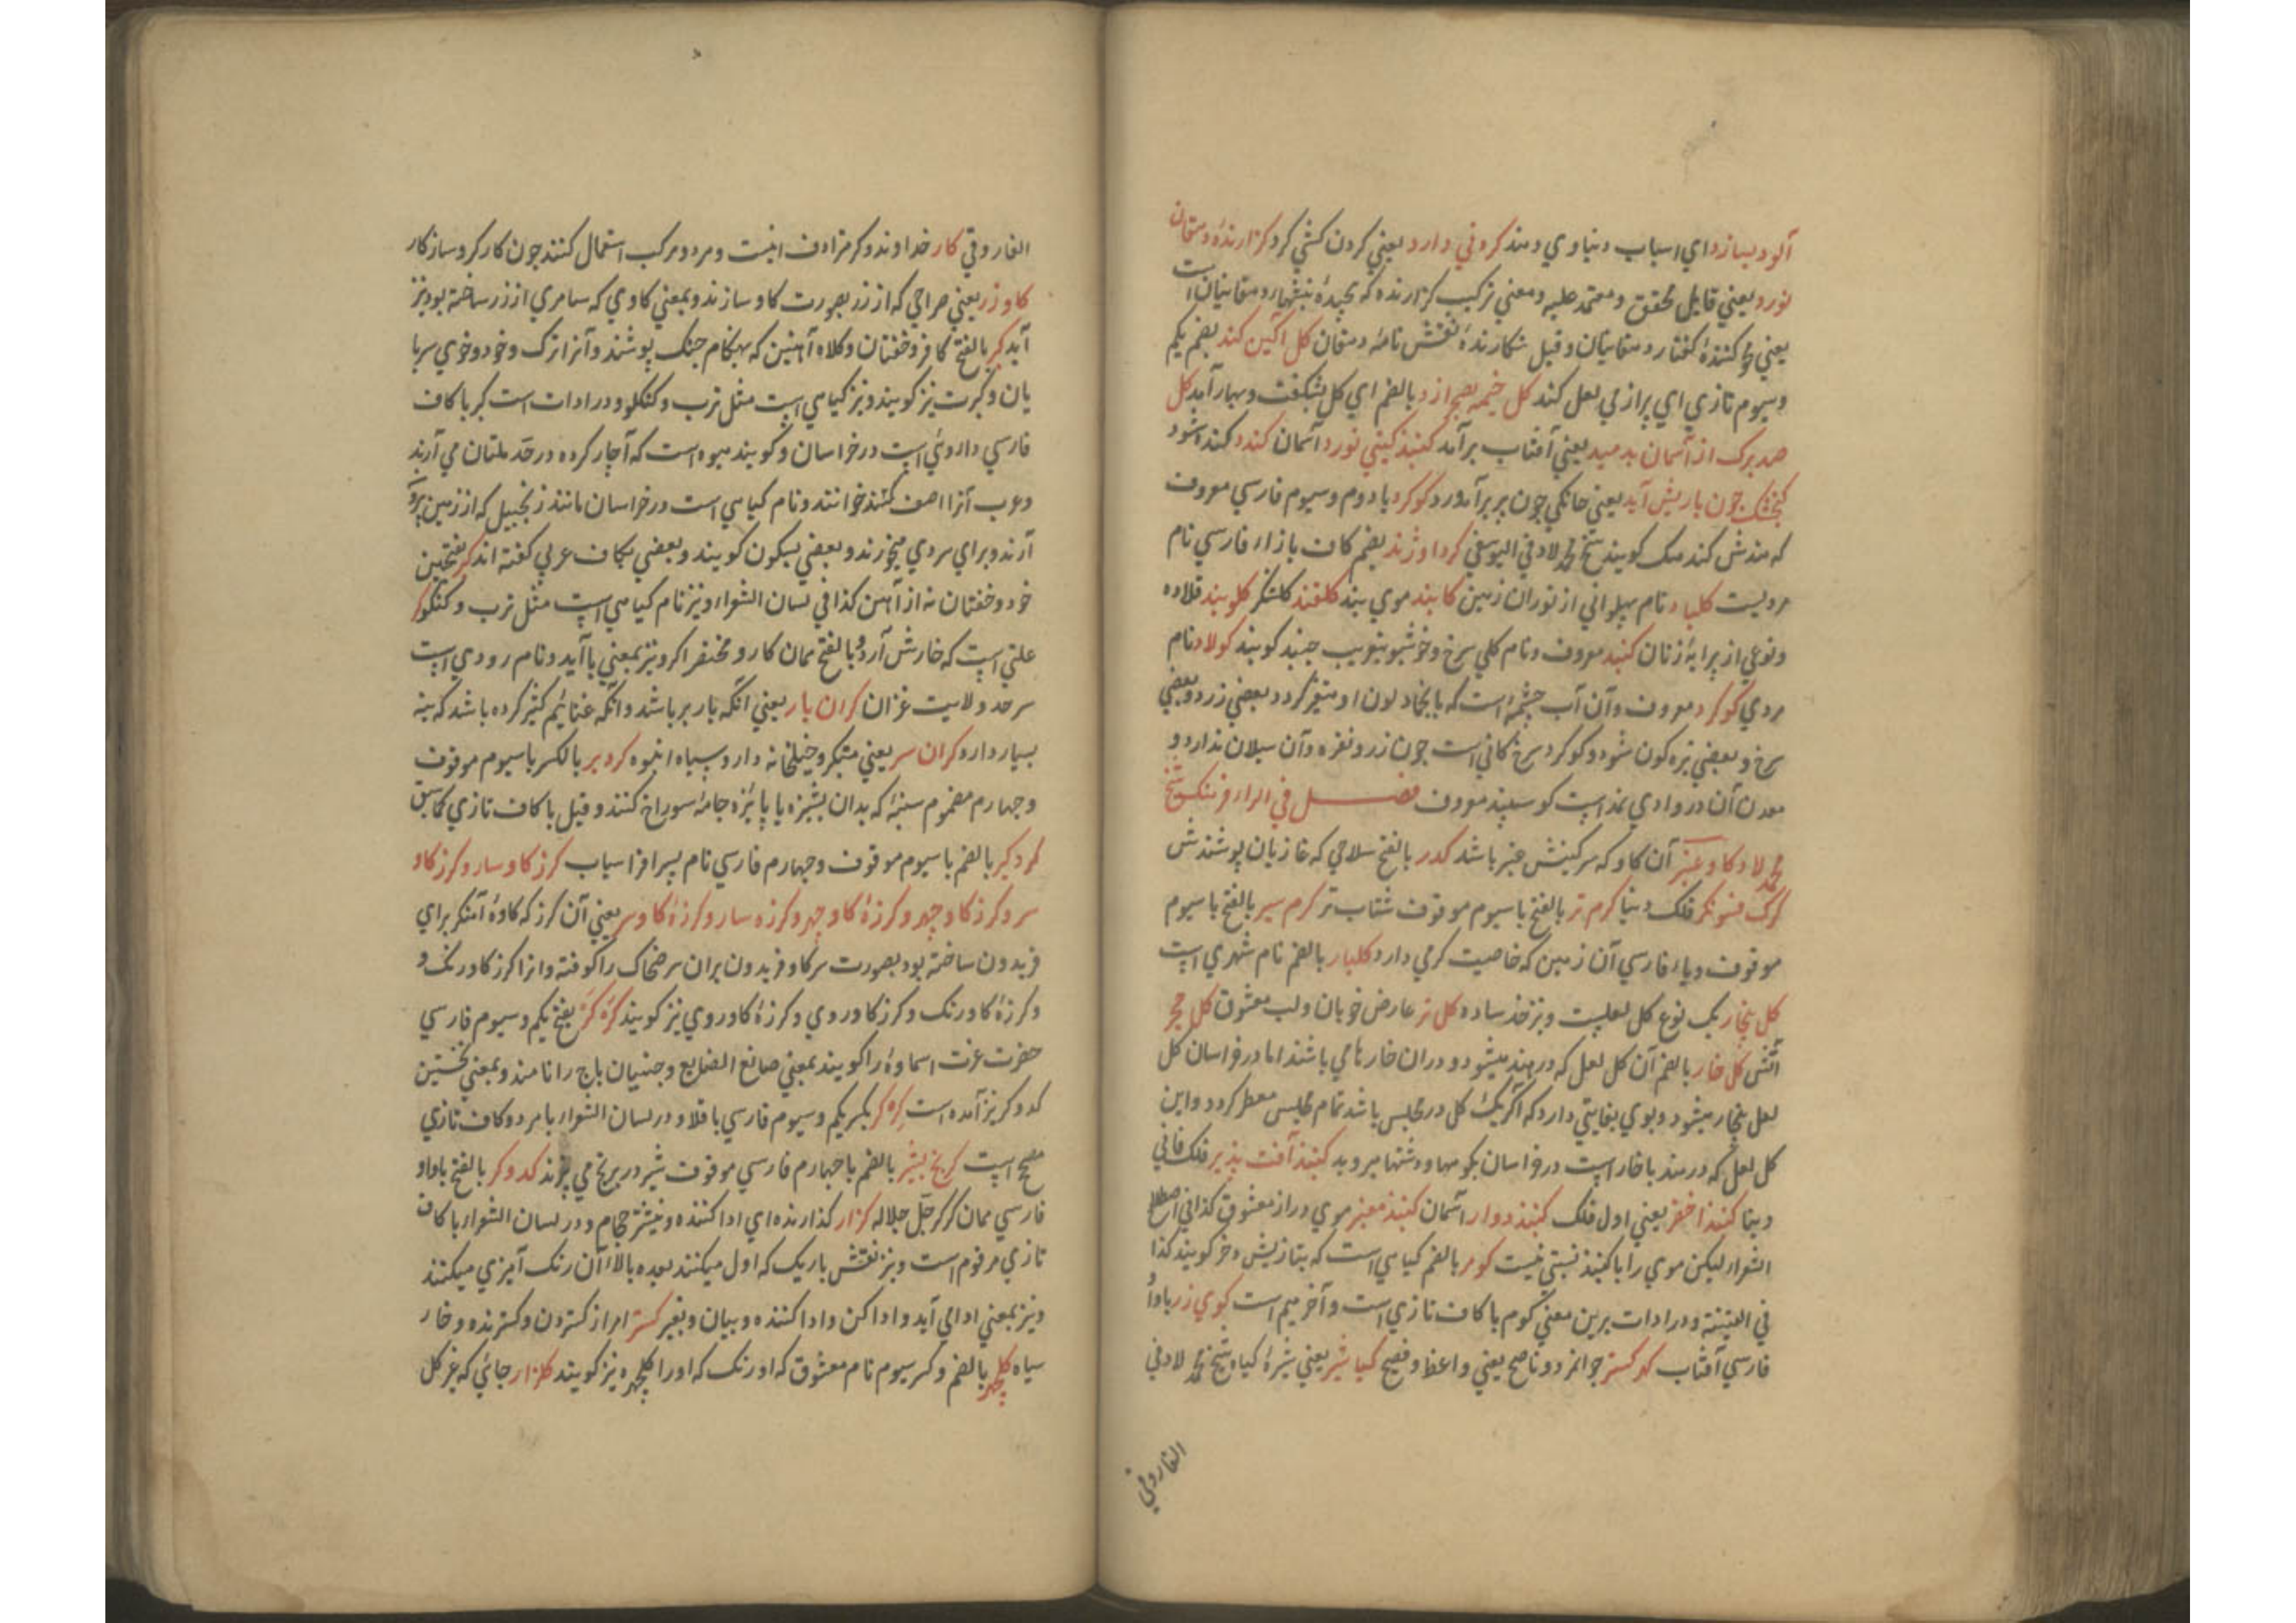 آلود بسازد اي اسباب دنياوي دهند كروني دارد يعني كردن كشي كرد كزارنده دهقان
نورد يعني قايل محقق و معتمد عليه و معني تركيب كزارنده كه پجيده نبشتهاء دهقانيان است
يعني كنندهٔ كفتار دهقانيان و قيل نكارندهٔ نقش نامهٔ دهقان كل آكين كند بضم يكم
و سيوم تازي اي پر از مي لعل كند كل خيمه بصحرا زد بالضم اي كل بشكفت و بهار آمد كل
صد برك از آسمان بدميد يعني آفتاب برآمد كنبد كيتي نورد آسمان كندد كنده شود
كنجشك چون باريش آيد يعني خانكي چون پر برآورد كوكرد با دوم و سيوم فارسي معروف
كه هندش كندهك كويند شيخ محمد لاد في اليوسفي كرداوژند بضم كاف با زاء فارسي نام
مرديست كلباد نام پهلواني از توران زمين كابند موي بند كلقند كلشكر كلوبند قلاده
و نوعي از پيرايهٔ زنان كنبد معروف و نام كلي سرخ و خوشبو بتعريب جنبد كويند كولاد نام
مردي كوكرد معروف و آن آب چشمهٔ است كه بانجماد لون او متغير كردد بعضي زرد و بعضي
سرخ و بعضي تيره كون شود و كوكرد سرخ كاني است چون زر و نقره و آن سيلان ندارد و
معدن آن در وادي نمداست كوسپند معروف فصل في الراء فرهنك شيخ
محمد لاد كاو عنبر آن كاو كه سركينش عنبر باشد كدر بالفتح سلاحي كه غازيان پوشندش
كرك فسونكر فلك دنيا كرم تر بالفتح با سيوم موقوف شتاب تر كرم سير بالفتح با سيوم
موقوف و ياء فارسي آن زمين كه خاصيت كرمي دارد كلبار بالضم نام شهري است
كل بنجار يك نوع كل لعلست و نيز خد ساده كل تر عارض خوبان و لب معشوق كل مجمر
آتش كل خار بالضم آن كل لعل كه در هند ميشود و در ان خارها مي باشند اما در خراسان كل
لعل بنجار ميشود و بوي بغايتي دارد كه اكر يك كل در مجلس باشد تمام مجلس معطر كردد و اين
كل لعل كه در هند با خار است در خراسان بكوهها و دشتها ميرويد كنبد آفت پذير فلك فاني
و دنيا كنبد اخضر يعني اول فلك كنبد دوار آسمان كنبد معنبر موي دراز معشوق كذا في اصطلاح
الشعراء ليكن موي را با كنبد نسبتي نيست كومر بالضم كياهي است كه بتازيش دخر كويند كذا
في القنية و در ادات برين معني كوم با كاف تازي است و آخر ميم است كوي زر با واو
فارسي آفتاب كهر كستر جوانمرد و ناصح يعني واعظ و فصيح كيا شير يعني شيرهٔ كياه شيخ محمد لاد في
الفاروقي
الفاروقي كار خداوند و كر مرادف اينست و مرد و مركب استعمال كنند چون كاركر و سازكار
كاو زر يعني صراحي كه از زر بصورت كاو سازند و بمعني كاوي كه سامري از زر ساخته بود نيز
آيد كبر بالفتح كافر و خفتان و كلاه آهنين كه بهنكام جنك پوشند و آنرا ترك و خود و خوي سربا
يان و كبرت نيز كويند و نيز كياهي است مثل ترب و كنكلو و در ادات است كبر با كاف
فارسي داروئي است در خراسان و كويند ميوه است كه آچار كرده در حد ملتان مي آرند
و عرب آنرا اصف كنند خوانند و نام كياهي است در خراسان مانند زنجبيل كه از زمين برو
آرند و براي سردي ميخورند و بعضي بسكون كويند و بعضي بكاف عربي كفته اند كبر بفتحتين
خود و خفتان نه از آهن كذا في لسان الشعراء و نيز نام كياهي است مثل ترب و كنكو كر
علتي است كه خارش آرد و بالفتح همان كار و مختصر اكر و نيز بمعني يا آيد و نام رودي است
سرحد ولايت غزان كران بار يعني انكه بار بر باشد و آنكه غنايم كثير كرده باشد كه بنه
بسيار دارد كران سر يعني متكبر و خيلخانه دار و سپاه انبوه كردبر بالكسر با سيوم موقوف
و چهارم مضموم سنبهٔ كه بدان پشيزه يا پائزه جامه سوراخ كنند و قيل با كاف تازي كما سبق
كردكير بالضم با سيوم موقوف و چهارم فارسي نام پسر افراسياب كرز كاو سار و كرز كاو
سر و كرز كاو چهر و كرزهٔ كاو چهر و كرزه سار و كرزهٔ كاوسر يعني آن كرز كه كاوهٔ آهنكر براي
فريدون ساخته بود بصورت سر كاو فريدون بران سر ضحاك را كوفته و انرا كرز كاورنك و
و كرزهٔ كاورنك و كرز كاو روي و كرزهٔ كاو روي نيز كويند كركر بفتح يكم و سيوم فارسي
حضرت عزت اسماوه را كويند بمعني صانع الصنايع و جنيان باج را نامند و بمعني نخستين
كدوكر نيز آمده است كركر بكسر يكم و سيوم فارسي باقلا و در لسان الشعراء با هر دو كاف تازي
مصحح است كرنج بشير بالضم با چهارم فارسي موقوف شير در برنج مي پزند كدوكر بالفتح با واو
فارسي همان كركر جل جلاله كزار كذارنده اي ادا كننده و نيشتر حجام و در لسان الشعراء با كاف
تازي مرقوم است و نيز نقش باريك كه اول ميكنند بعده بالاء آن رنك آميزي ميكنند
و نيز بمعني ادا مي آيد و ادا كن و ادا كننده و بيان و بغير كستر امر از كستردن و كسترنده و خار
سياه كلچهر بالضم و كسر سيوم نام معشوق كه اورنك كه او را كلچهره نيز كويند كلزار جائي كه غير كل